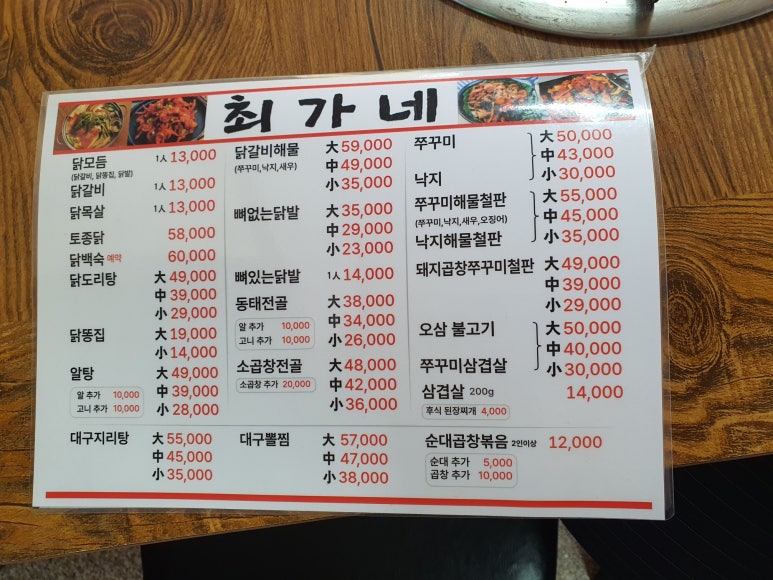 최가네
닭모듬 1人 13,000
(닭갈비, 닭똥집, 닭발)
닭갈비 1人 13,000
닭목살 1人 13,000
토종닭 58,000
닭백숙 예약 60,000
닭도리탕 大 49,000
中 39,000
小 29,000
닭똥집 大 19,000
小 14,000
알탕 大 49,000
알 추가 10,000 中 39,000
고니 추가 10,000 小 28,000
닭갈비해물 大 59,000
(쭈꾸미,낙지,새우) 中 49,000
小 35,000
뼈없는닭발 大 35,000
中 29,000
小 23,000
뼈있는닭발 1人 14,000
동태전골 大 38,000
알 추가 10,000 中 34,000
고니 추가 10,000 小 26,000
소곱창전골 大 48,000
소곱창 추가 20,000 中 42,000
小 36,000
쭈꾸미 大 50,000
中 43,000
낙지 小 30,000
쭈꾸미해물철판 大 55,000
(쭈꾸미,낙지,새우,오징어) 中 45,000
낙지해물철판 小 35,000
돼지곱창쭈꾸미철판 大 49,000
中 39,000
小 29,000
오삼 불고기 大 50,000
中 40,000
쭈꾸미삼겹살 小 30,000
삼겹살 200g 14,000
후식 된장찌개 4,000
대구지리탕 大 55,000
中 45,000
小 35,000
대구뽈찜 大 57,000
中 47,000
小 38,000
순대곱창볶음 2인이상 12,000
순대 추가 5,000
곱창 추가 10,000